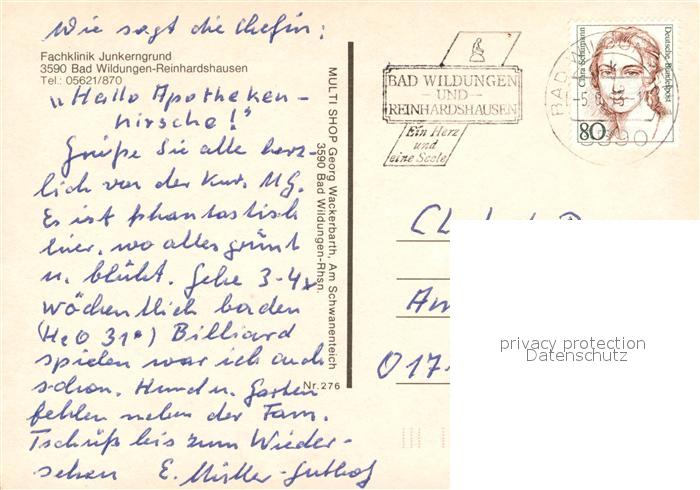 Wie sagt die Chefin:
Fachklinik Junkerngrund
3590 Bad Wildungen-Reinhardshausen
Tel.: 05621/870
"Hallo Apotheken-
hirsche!"
Grüße Sie alle herz-
lich von der Kur.
Es ist phantastisch
hier, wo alles grünt
u. blüht. Gehe 3-4x
wöchentlich baden
(H2O 31°) Billiard
spielen war ich auch
schon. Hund u. Garten
fehlen neben der Fam.
Tschüß bis zum Wieder-
sehen E. Müller-Guthof
MULTI SHOP Georg Wackerbarth, Am Schwanenteich
3590 Bad Wildungen-Rhsn.
Nr. 276
BAD WILDUNGEN
- UND -
REINHARDSHAUSEN
Ein Herz
und
eine Seele
Clara Schumann
Deutsche Bundespost
80
BAD WILDUNGEN
3590
Am
017
privacy protection
Datenschutz